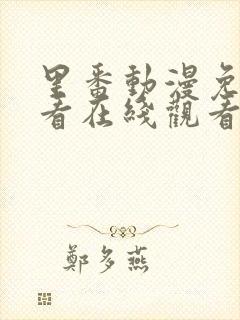 里番動漫免
看在綫觀看
鄭多燕